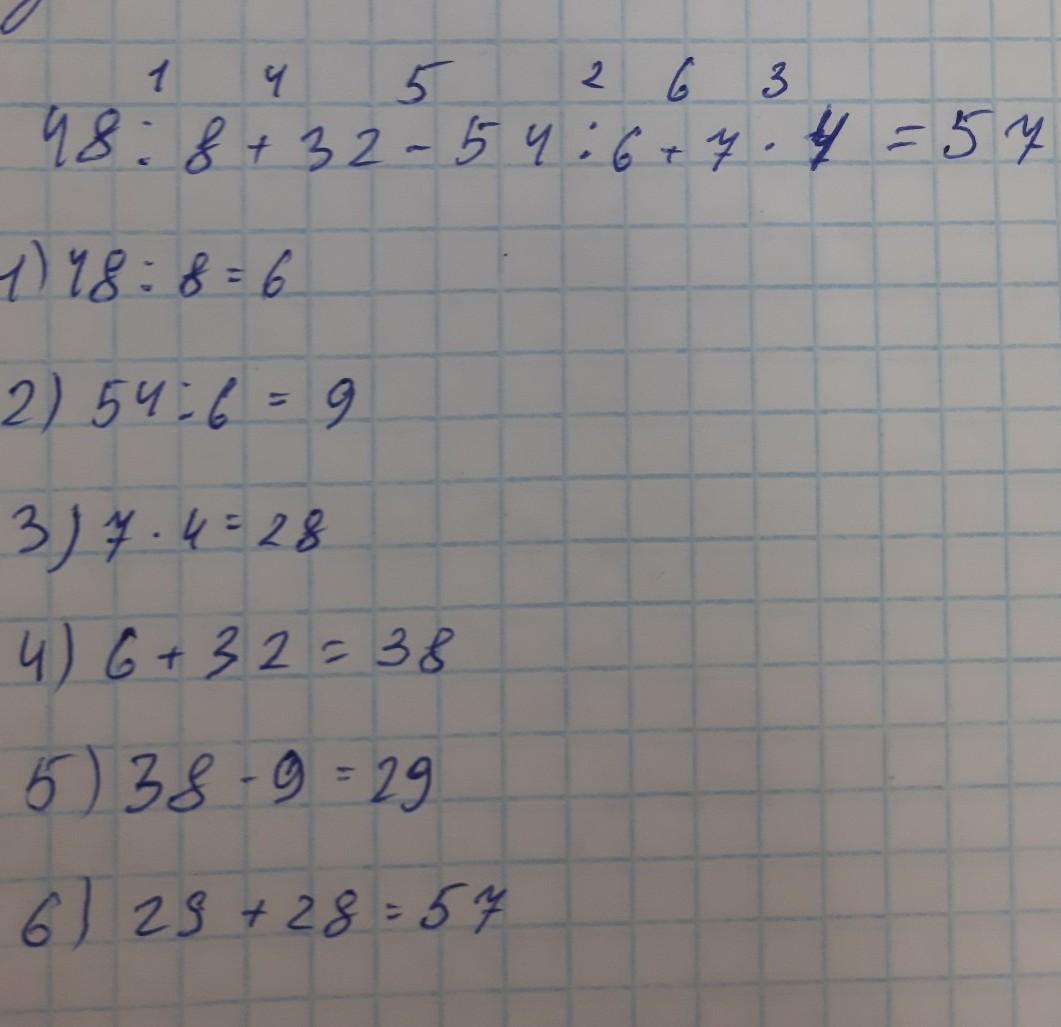 1 4 5 2 6 3
48 : 8 + 32 - 54 : 6 + 7 · 4 = 57
1) 48 : 8 = 6
2) 54 : 6 = 9
3) 7 · 4 = 28
4) 6 + 32 = 38
5) 38 - 9 = 29
6) 29 + 28 = 57